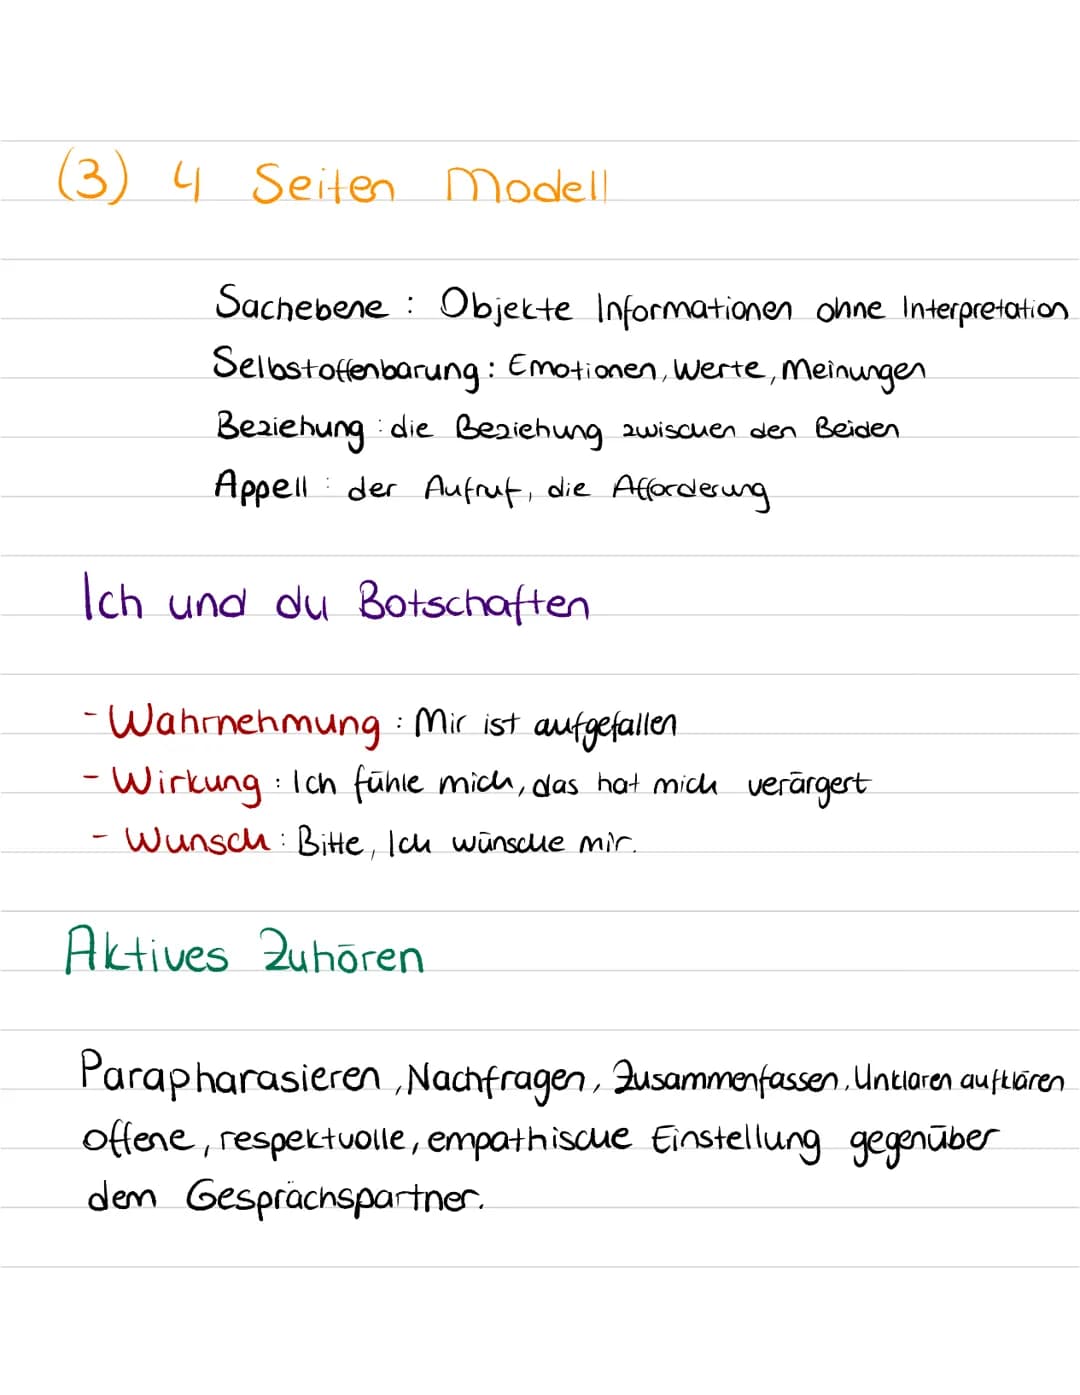 (3) 4 Seiten Modell
Sachebene : Objekte Informationen ohne Interpretation
Selbstoffenbarung : Emotionen, Werte, Meinungen
Beziehung : die Beziehung zwischen den Beiden
Appell : der Aufruf, die Afforderung
Ich und du Botschaften
- Wahrnehmung : Mir ist aufgefallen
- Wirkung : Ich fühle mich, das hat mich verärgert
- Wunsch : Bitte, Ich wünsche mir.
Aktives Zuhören
Parapharasieren, Nachfragen, Zusammenfassen, Unklaren aufklären
offene, respektvolle, empathische Einstellung gegenüber
dem Gesprächspartner.